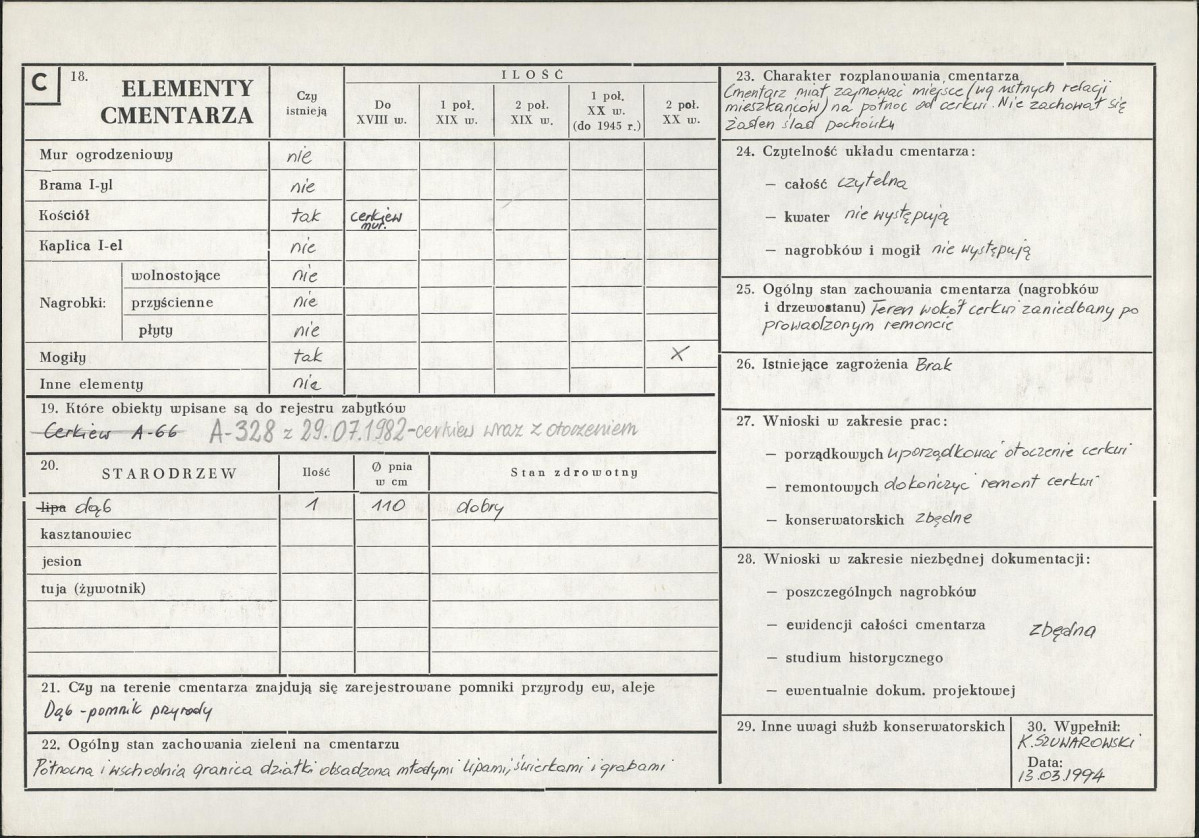 C
18. ELEMENTY
CMENTARZA
Czy
istnieją
ILOŚĆ
Do
XVIII w.
1 poł.
XIX w.
2 poł.
XIX w.
1 poł.
XX w.
(do 1945 r.)
2 poł.
XX w.
Mur ogrodzeniowy nie
Brama I-yl nie
Kościół tak cerkiew
mur.
Kaplica I-el nie
Nagrobki:
wolnostojące nie
przyścienne nie
płyty nie
Mogiły tak X
Inne elementy nie
19. Które obiekty wpisane są do rejestru zabytków
Cerkiew A-66 A-328 z 29.07.1982-cerkiew wraz z otoczeniem
20. STARODRZEW
Ilość
Ø pnia
w cm
Stan zdrowotny
lipa dąb 1 110 dobry
kasztanowiec
jesion
tuja (żywotnik)
21. Czy na terenie cmentarza znajdują się zarejestrowane pomniki przyrody ew, aleje
Dąb - pomnik przyrody
22. Ogólny stan zachowania zieleni na cmentarzu
Północna i wschodnia granica działki obsadzona młodymi lipami, świerkami i grabami
23. Charakter rozplanowania cmentarza
Cmentarz miał zajmować miejsce (wg ustnych relacji
mieszkańców) na północ od cerkwi. Nie zachował się
żaden ślad pochówku
24. Czytelność układu cmentarza:
— całość czytelna
— kwater nie występują
— nagrobków i mogił nie występują
25. Ogólny stan zachowania cmentarza (nagrobków
i drzewostanu) Teren wokół cerkwi zaniedbany po
prowadzonym remoncie
26. Istniejące zagrożenia Brak
27. Wnioski w zakresie prac:
— porządkowych uporządkować otoczenie cerkwi
— remontowych dokończyć remont cerkwi
— konserwatorskich zbędne
28. Wnioski w zakresie niezbędnej dokumentacji:
— poszczególnych nagrobków
— ewidencji całości cmentarza zbędna
— studium historycznego
— ewentualnie dokum. projektowej
29. Inne uwagi służb konserwatorskich
30. Wypełnił:
K. SZUWAROWSKI
Data:
13.03.1994